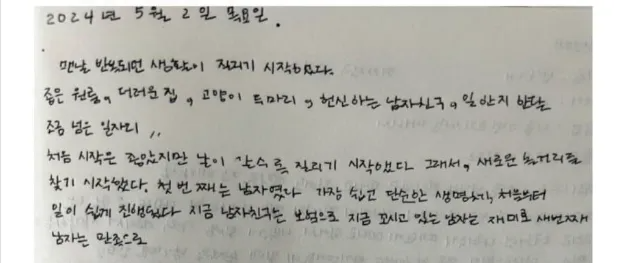 2024년 5월 2일 목요일.
맨날 반복되면 생활이 질리기 시작했다.
좁은 원룸, 더러운 집, 고양이 두마리, 헌신하는 남자친구, 일 안지
조금 넘은 일자리,,
처음 시작은 좋았지만 날이 갈수록 질리기 시작했다 그래서, 새로운 놀거리를
찾기 시작했다. 첫 번째는 남자였다 가장 쉽고 단순한 생명체, 처음부터
일이 쉽게 진행됐다 지금 남자친구는 보험으로 지금 꼬시고 있는 남자는 재미로 세번째
남자는 만족으로